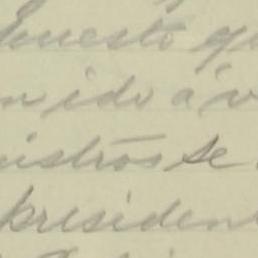 Ernesto qu
n ido á v
istros se
presiden